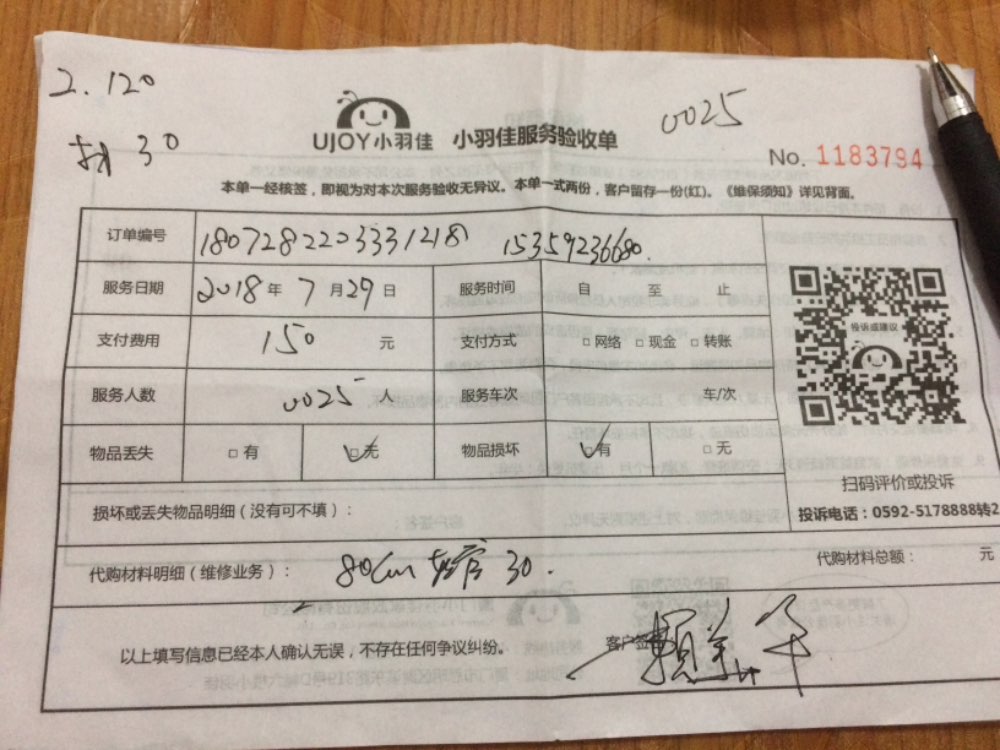 2. 120
30
0025
UJOY小羽佳 小羽佳服务验收单
No. 1183794
本单一经核签，即视为对本次服务验收无异议。本单一式两份，客户留存一份(红)。《维保须知》详见背面。
订单编号 1807282203331218 15359236680.
服务日期 2018年 7月29日 服务时间 自 至 止
支付费用 150 元 支付方式 □网络 □现金 □转账
服务人数 0025 人 服务车次 车/次
物品丢失 □有 □无 物品损坏 □有 □无
投诉或建议
扫码评价或投诉
投诉电话：0592-5178888转2
损坏或丢失物品明细（没有可不填）：
代购材料明细（维修业务）： 80cm 软管 30. 代购材料总额： 元
以上填写信息已经本人确认无误，不存在任何争议纠纷。 客户签